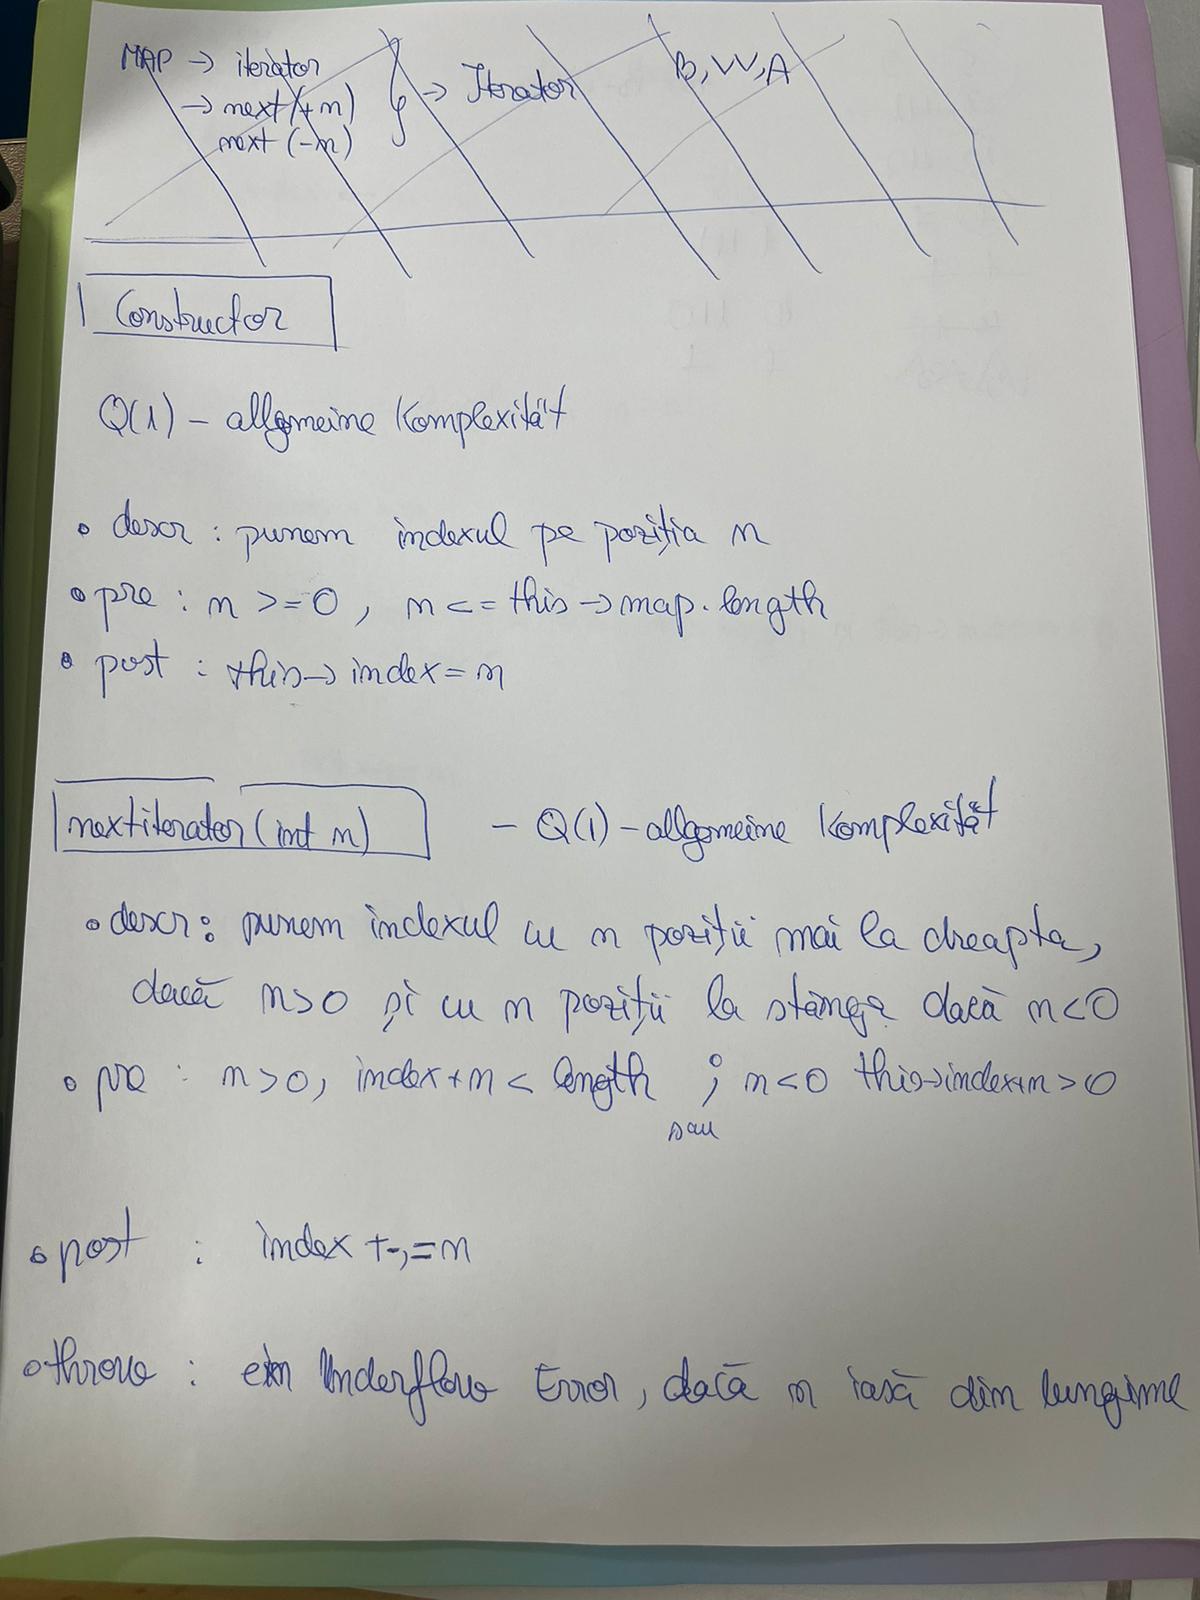 MAP → iterator
→ next (+n) } → Iterator B, W, A
next (-n)
Constructor
Θ(1) - allgemeine Komplexität
• descr : punem indexul pe poziția n
• pre : n >= 0, n <= this → map.length
• post : this → index = n
nextiterator (int n) - Θ(1) - allgemeine Komplexität
• descr : punem indexul cu n poziții mai la dreapta,
dacă n>0 și cu n poziții la stânga dacă n<0
• pre : n>0, index+n < length ; n<0 this→index+n > 0
sau
• post : index +-,= n
• throw : ein Underflow Error, dacă n iasă din lungime